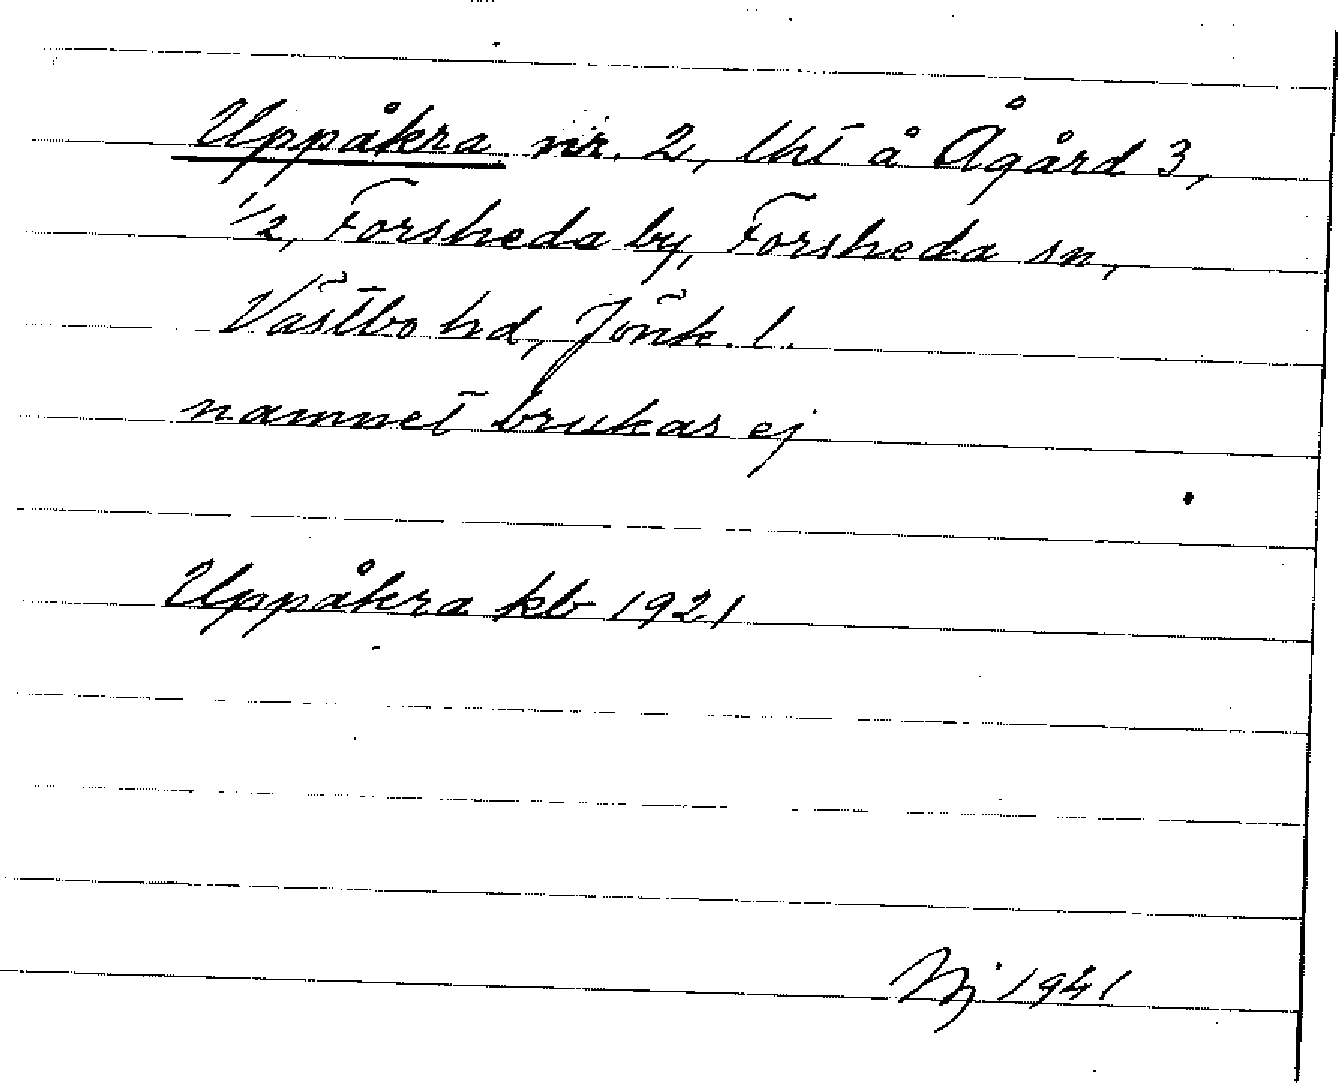 Uppåkra nr. 2, lht å Ågård 3,
1/2, Forsheda by, Forsheda sn,
Västbo hd, Jönk. l.
namnet brukas ej
Uppåkra kb 1921
1941